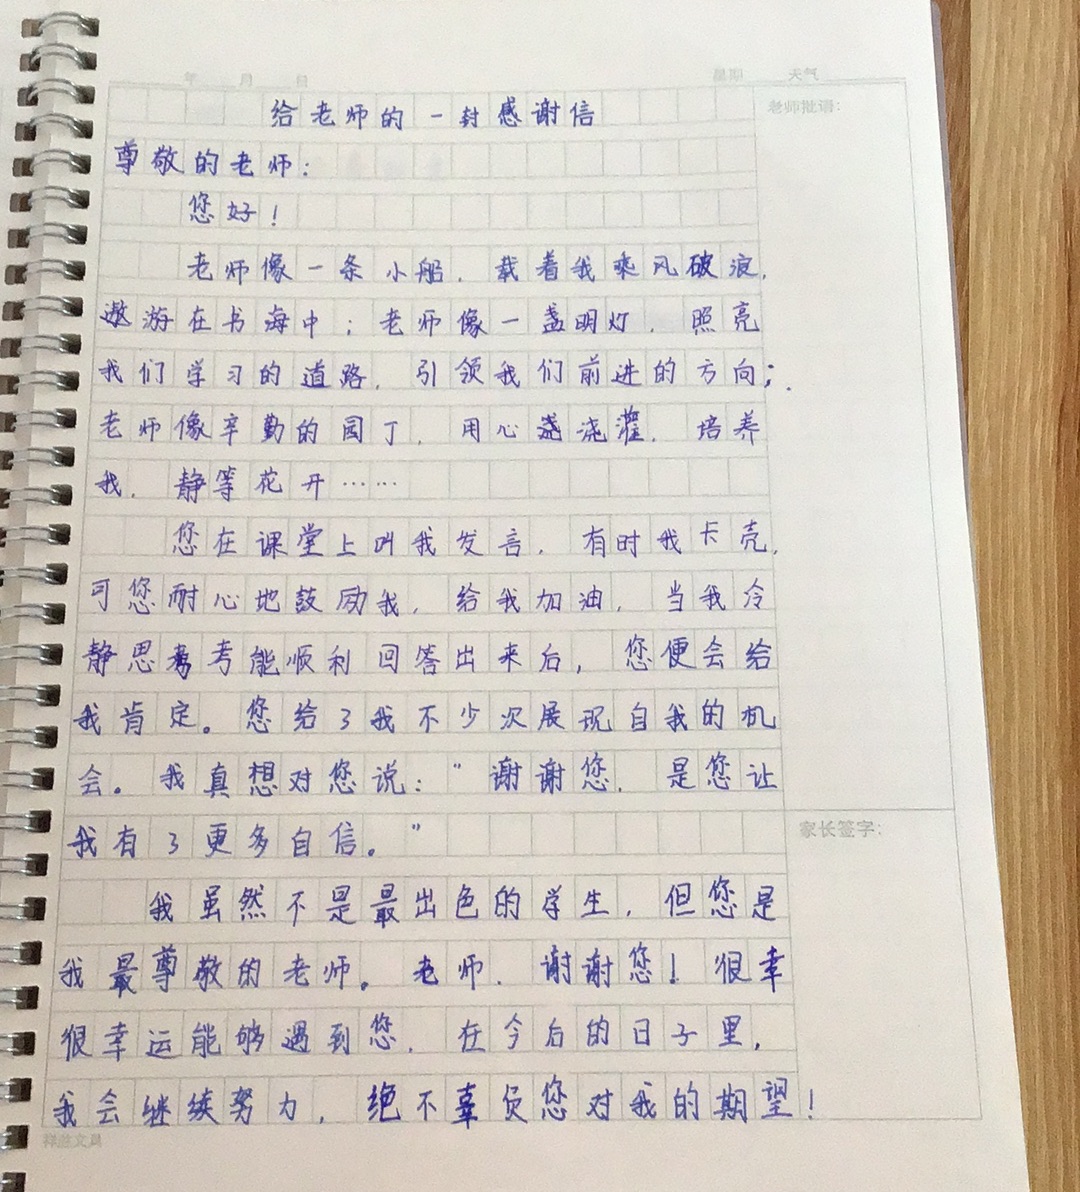 年 月 日 星期 天气
给老师的一封感谢信
老师批语：
尊敬的老师：
您好！
老师像一条小船，载着我乘风破浪，
遨游在书海中；老师像一盏明灯，照亮
我们学习的道路，引领我们前进的方向；
老师像辛勤的园丁，用心浇灌，培养
我，静等花开……
您在课堂上叫我发言，有时我卡壳，
可您耐心地鼓励我，给我加油，当我冷
静思考能顺利回答出来后，您便会给
我肯定。您给了我不少次展现自我的机
会。我真想对您说：“谢谢您，是您让
我有了更多自信。”
家长签字：
我虽然不是最出色的学生，但您是
我最尊敬的老师。老师，谢谢您！很幸
很幸运能够遇到您，在今后的日子里，
我会继续努力，绝不辜负您对我的期望！